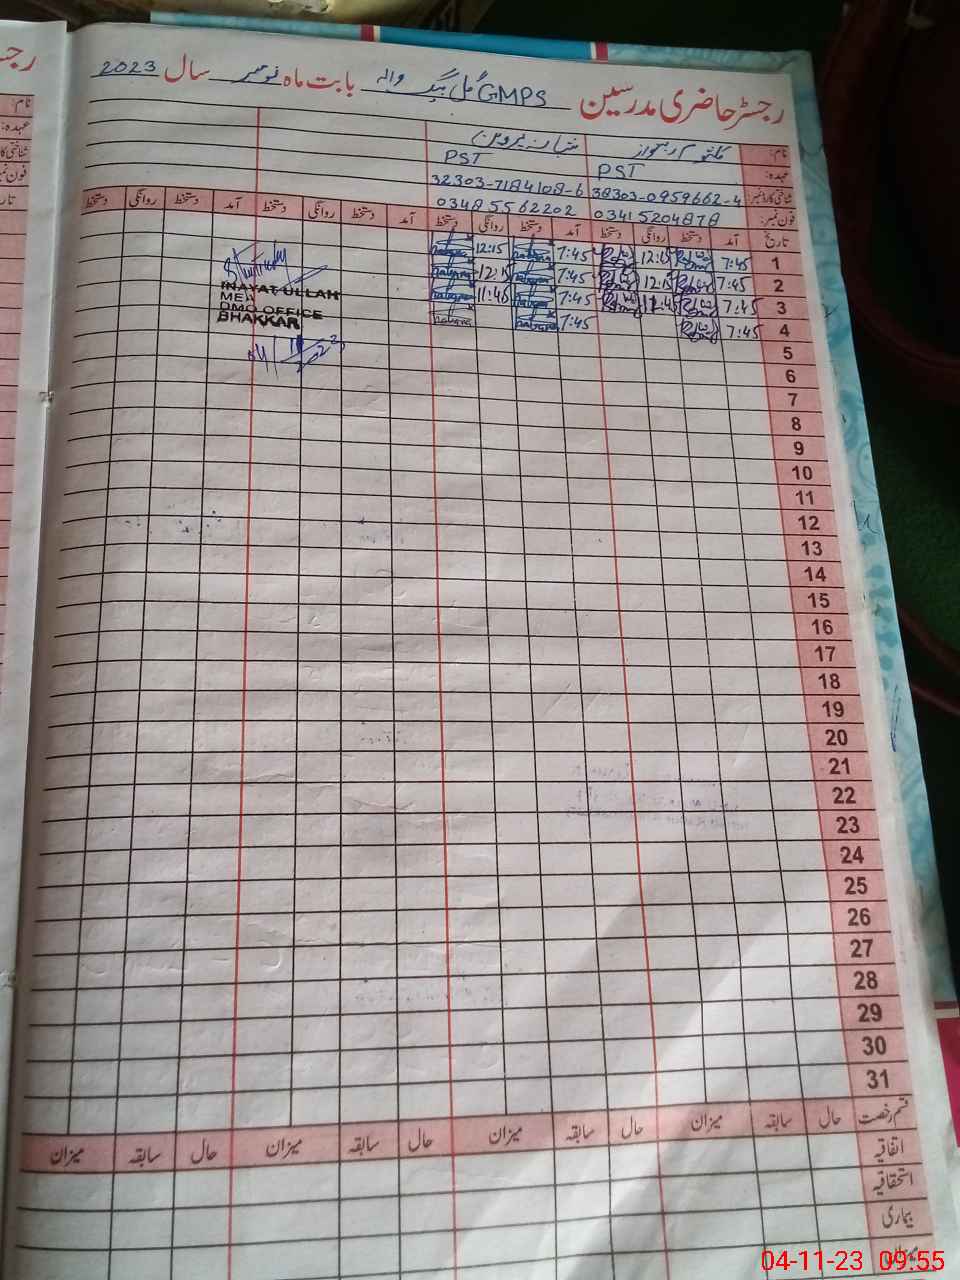 رجسٹر حاضری مدرسین GMPS گل بیگ والہ بابت ماہ نومبر سال 2023
نام: کلثوم شبانہ پروین
عہدہ: PST PST
شناختی کارڈ نمبر 38303-0959662-4 32303-7184108-6
فون نمبر: 03415204878 03485562202
تاریخ آمد دستخط روانگی دستخط آمد دستخط روانگی دستخط آمد دستخط روانگی دستخط آمد دستخط روانگی دستخط
1 7:45 12:15 7:45 12:15
2 7:45 12:15 7:45 12:15
3 7:45 11:45 7:45 11:46
4 7:45 7:45
INAYAT ULLAH
MEA
DMO OFFICE
BHAKKAR
5
6
7
8
9
10
11
12
13
14
15
16
17
18
19
20
21
22
23
24
25
26
27
28
29
30
31
قسم رخصت حال سابقہ میزان حال سابقہ میزان حال سابقہ میزان حال سابقہ میزان
اتفاقیہ
استحقاقیہ
بیماری
میزان
04-11-23 09:55